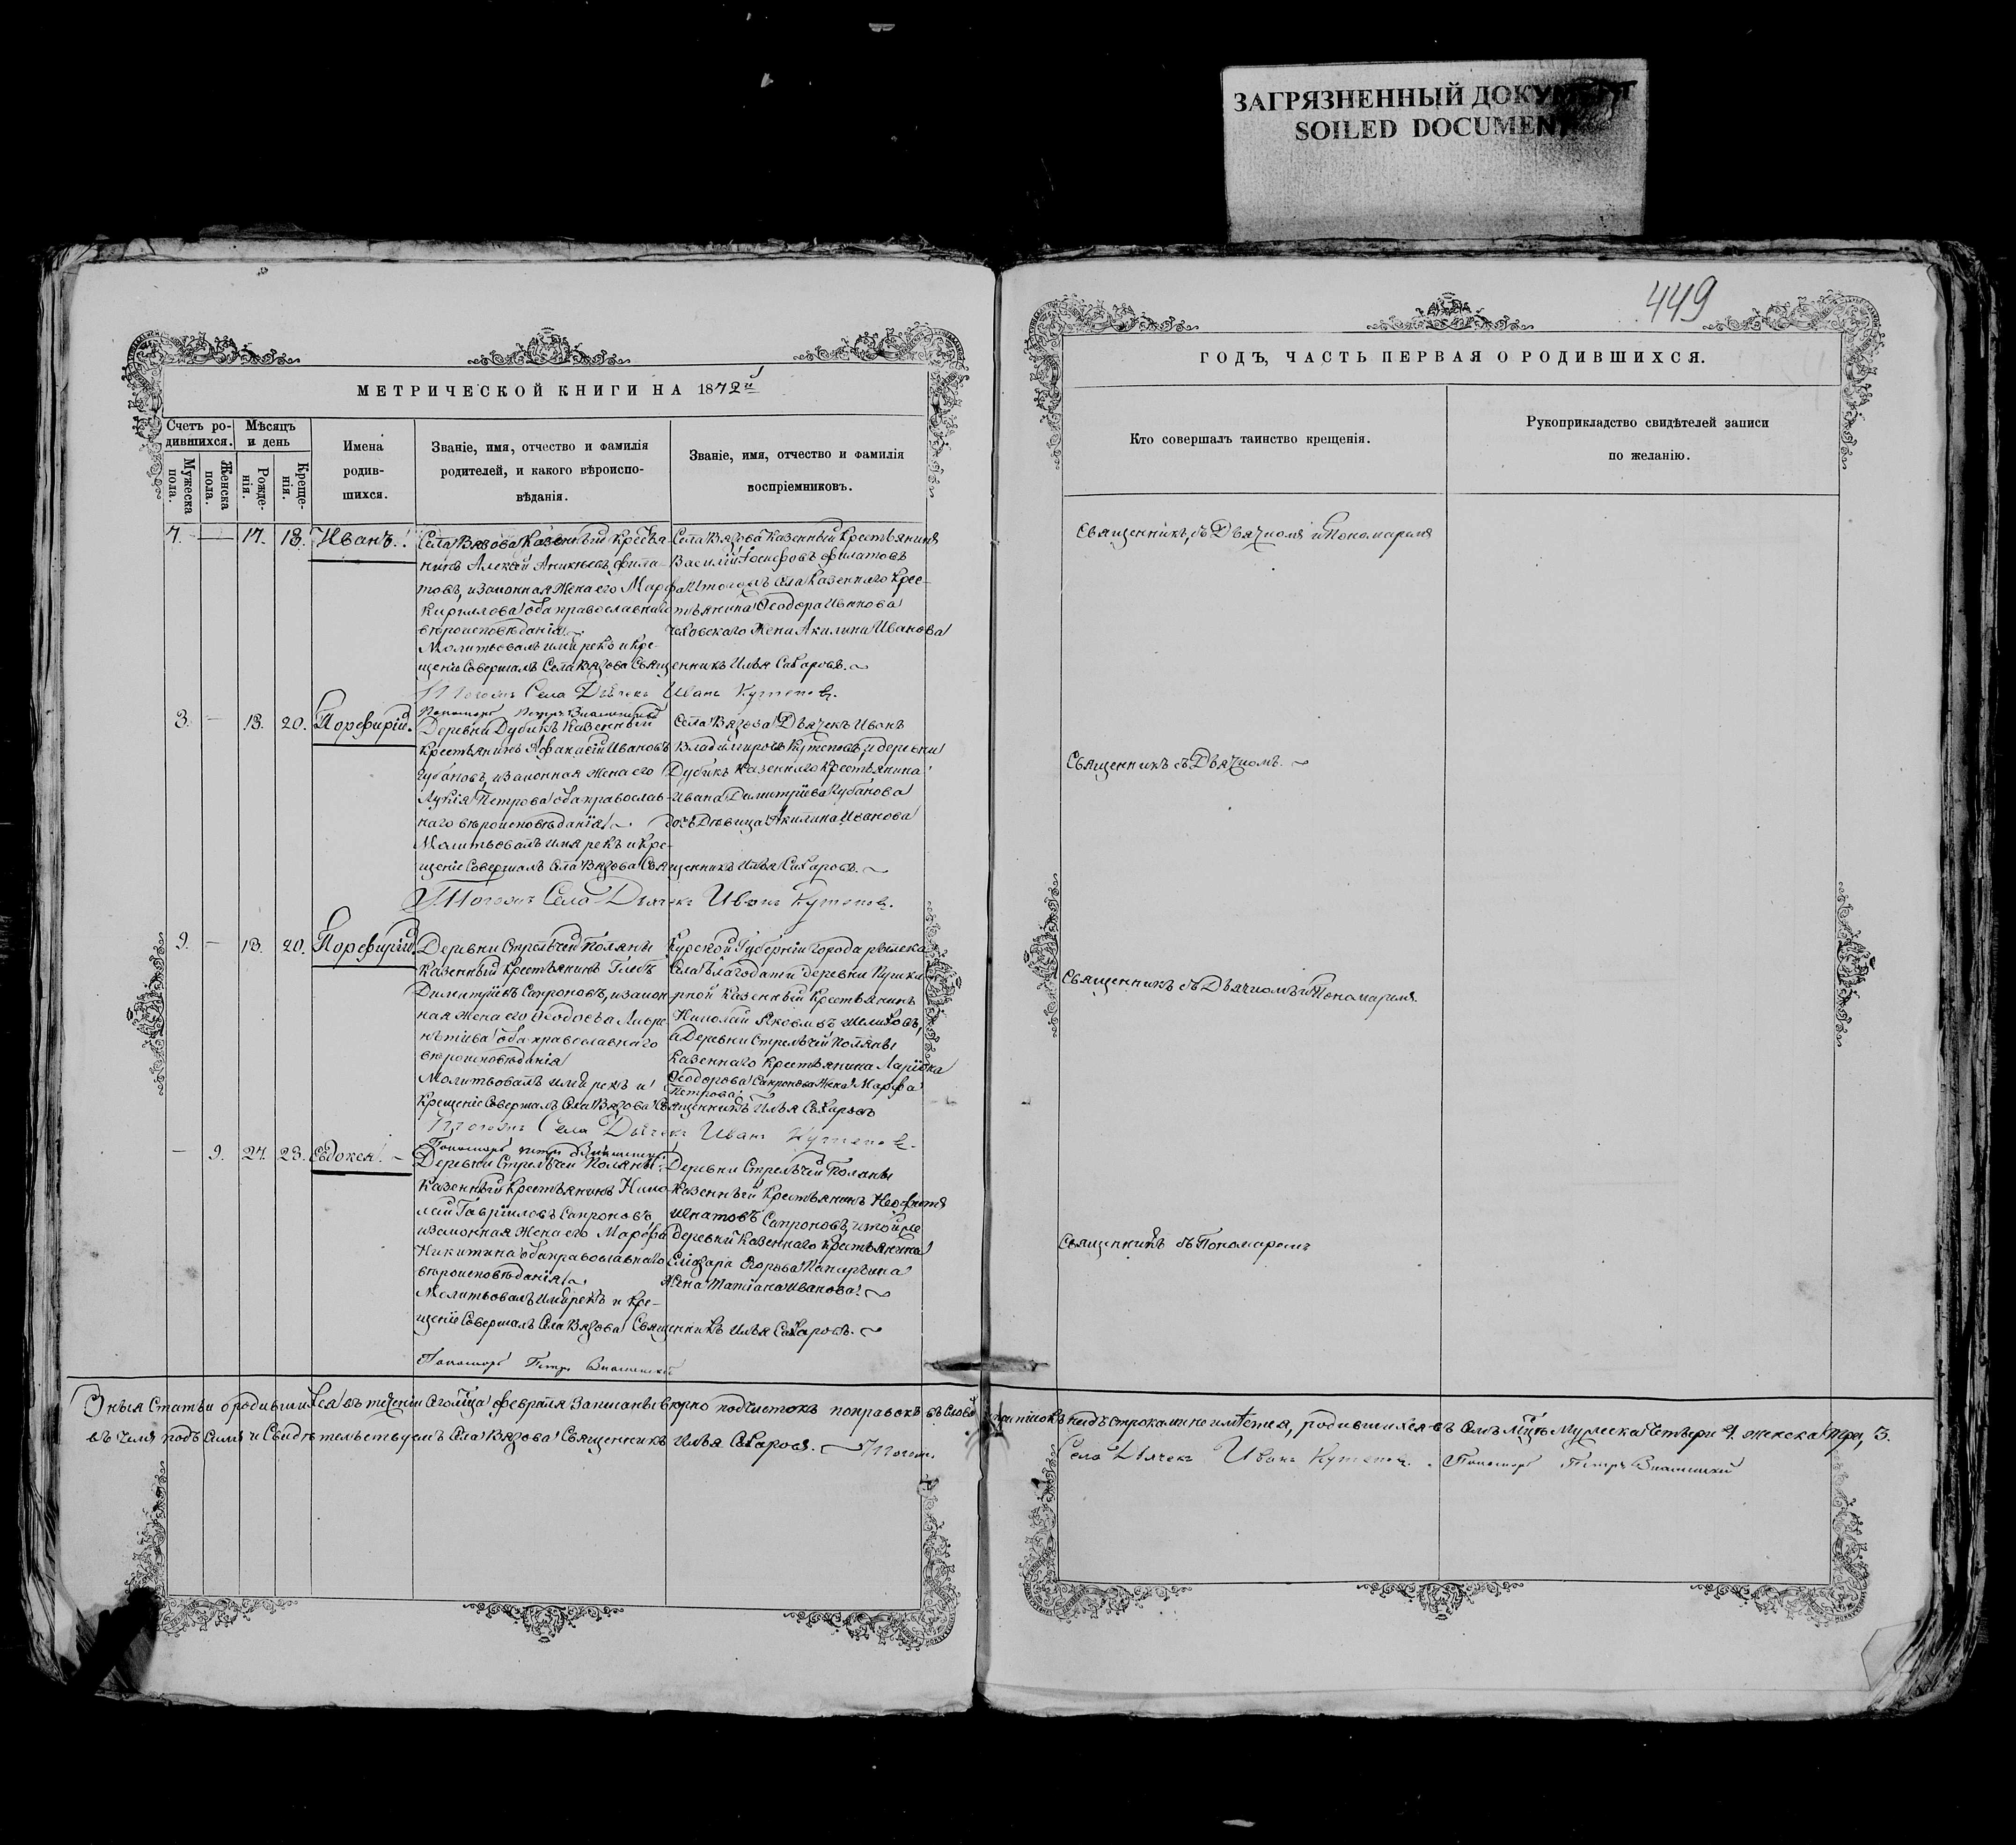 ЗАГРЯЗНЕННЫЙ ДОКУМЕНТ
SOILED DOCUMENT
449
МЕТРИЧЕСКОЙ КНИГИ НА 1872й
Счетъ ро-
дившихся.
Мѣсяцъ
и день
Мужеска
пола.
Женска
пола.
Рожде-
нія.
Креще-
нія.
Имена
родив-
шихся.
Званіе, имя, отчество и фамилія
родителей, и какого вѣроиспо-
вѣданія.
Званіе, имя, отчество и фамилія
воспріемниковъ.
7. — 17. 18. Иванъ.
Села Вязова Казенный Крестья-
нинъ Алексѣй Аникѣевъ Фила-
товъ, и законная жена его Марфа
Кириллова оба православнаго
вѣроисповѣданія
Села Вязова Казенный Крестьянинъ
Василій Іосифовъ Филатовъ
и тогожъ села Казеннаго Крес-
тьянина Ѳеодора Иванова
жена Акилина Иванова
Молитвовалъ имя рекъ и Кре-
щеніе Совершалъ Села Вязова Священникъ Илья Сахаровъ.
Тогожъ Села Дьячекъ Иванъ Кутеповъ.
Пономарь Петръ
8. — 18. 20. Порфирій.
Деревни Дубикъ Казенный
Крестьянинъ Афанасій Ивановъ
Губановъ, и законная жена его
Лукія Петрова оба православ-
наго вѣроисповѣданія
Села Вязова Дьячекъ Иванъ
Владиміровъ Кутеповъ, и деревни
Дубикъ Казеннаго Крестьянина
Ивана Димитріева Губанова
дочь Дѣвица Акилина Иванова
Молитвовалъ имя рекъ и Кре-
щеніе Совершалъ Села Вязова Священникъ Илья Сахаровъ.
Тогожъ Села Дьячекъ Иванъ Кутеповъ.
9. — 18. 20. Порфирій.
Деревни Стрѣлѣчей Поляны
Казенный Крестьянинъ Глебъ
Димитріевъ Сапроновъ, и закон-
ная жена его Ѳеодосья Лавре-
нтіева оба православнаго
вѣроисповѣданія
Курской Губерніи города Рыльска
Села Благодати деревни Пушка-
рной Казенный Крестьянинъ
Николай Яковлевъ Шелиховъ,
и Деревни Стрѣлѣчей Поляны
Казеннаго Крестьянина
Ѳеодорова Сапронова жена Марфа
Петрова
Молитвовалъ имя рекъ и
Крещеніе Совершалъ Села Вязова Священникъ Илья Сахаровъ
Тогожъ Села Дьячекъ Иванъ Кутеповъ.
Пономарь Петръ
— 9. 27. 28. Евдокея.
Деревни Стрѣлѣчей Поляны
Казенный Крестьянинъ Нико-
лай Гавриловъ Сапроновъ,
и законная жена его Марѳа
Никитина оба православнаго
вѣроисповѣданія
Деревни Стрѣлѣчей Поляны
Казенный Крестьянинъ
Игнатовъ Сапроновъ, и той же
деревни Казеннаго Крестьянина
Егорьева
жена Татіана Иванова.
Молитвовалъ имя рекъ и Кре-
щеніе Совершалъ Села Вязова Священникъ Илья Сахаровъ.
Пономарь Петръ
ГОДЪ, ЧАСТЬ ПЕРВАЯ О РОДИВШИХСЯ.
Кто совершалъ таинство крещенія.
Рукоприкладство свидѣтелей записи
по желанію.
Священникъ, съ Дьячкомъ и Пономаремъ
Священникъ съ Дьячкомъ.
Священникъ съ Дьячкомъ и Пономаремъ.
Священникъ съ Пономаремъ
статьи о родившихся въ теченіи сего февраля Записаны вѣрно подчистокъ поправокъ надъ строками не имѣется, родившихся въ семъ Мужеска Четыри 4. женска три, 3.
въ чемъ подъ Симъ и Свидѣтельствуемъ Села Вязова Священникъ Илья Сахаровъ. Тогожъ Села Дьячекъ Иванъ Кутеповъ. Пономарь Петръ